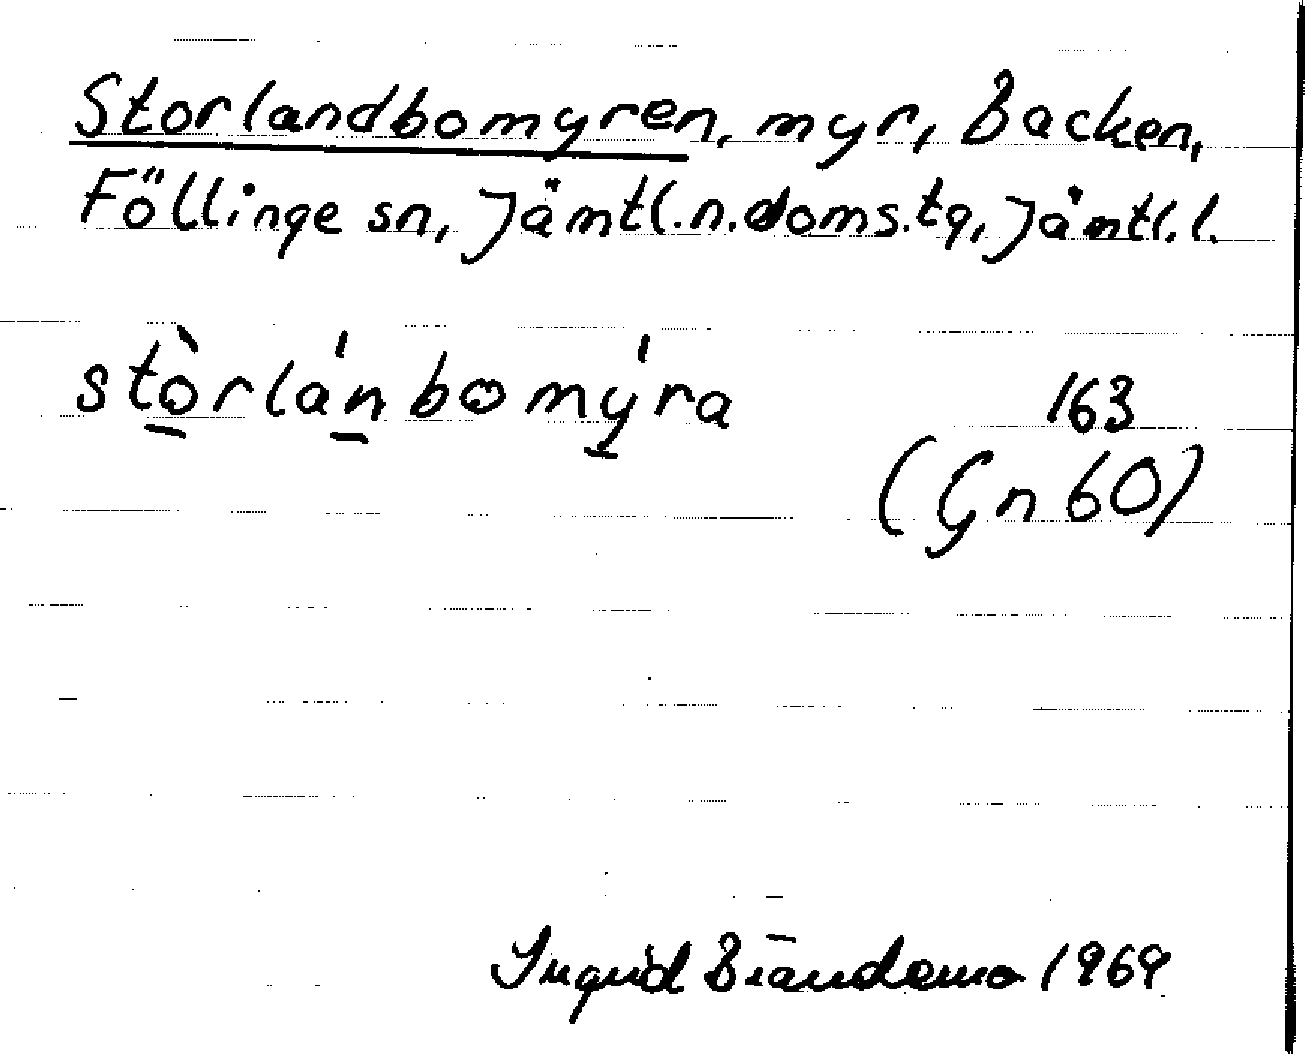 Storlandbomyren, myr, Backen,
Föllinge sn, Jämtl.n.doms.tg, Jämtl.l.
stòrlánbomýra
163
(Gn 60)
Ingrid 1969